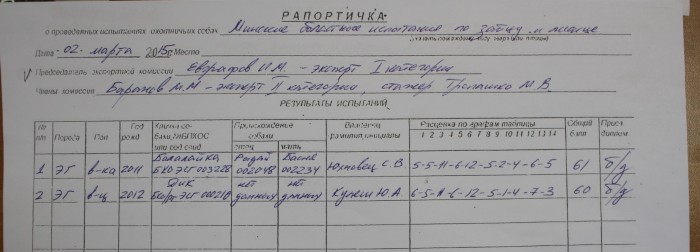 РАПОРТИЧКА
о проведенных испытаниях охотничьих собак Минские болотные испытания по зайцу и лисице
Дата 02. марта 2015г. Место
Председатель экспертной комиссии Евграфов И.М. - эксперт I категории
Члены комиссии Баранов М.М - эксперт II категории, стажер М.В.
РЕЗУЛЬТАТЫ ИСПЫТАНИЙ
№ п/п Порода Пол Год рожд Кличка собаки, №ВПКОС или род.свид Происхождение собаки отец мать Владелец фамилия, инициалы Расценка по графам таблицы 1 2 3 4 5 6 7 8 9 10 11 12 13 14 Общий балл Прис. диплом
1 ЭГ в-ка 2011 Балалайка БКО ЭСТ 003228 002048 002234 С.В. 5-5-11-6-12-5-2-4-6-5 61 б/д
2 ЭГ в-ц 2012 Дик ЭСТ 000210 нет данных нет данных Ю.А. 6-5-11-6-12-5-1-4-7-3 60 б/д